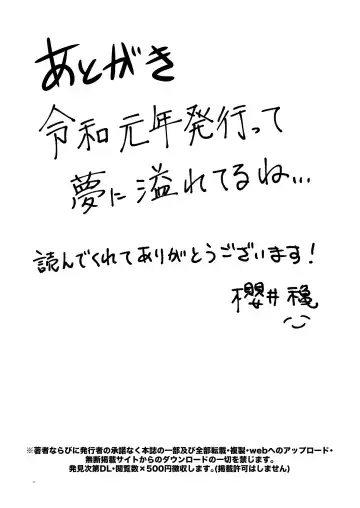 あとがき
令和元年発行って
夢に溢れてるね…
読んでくれてありがとうございます!
櫻井穐
※著者ならびに発行者の承諾なく本誌の一部及び全部転載・複製・webへのアップロード・
無断掲載サイトからのダウンロードの一切を禁じます。
発見次第DL・閲覧数×500円徴収します。(掲載許可はしません)